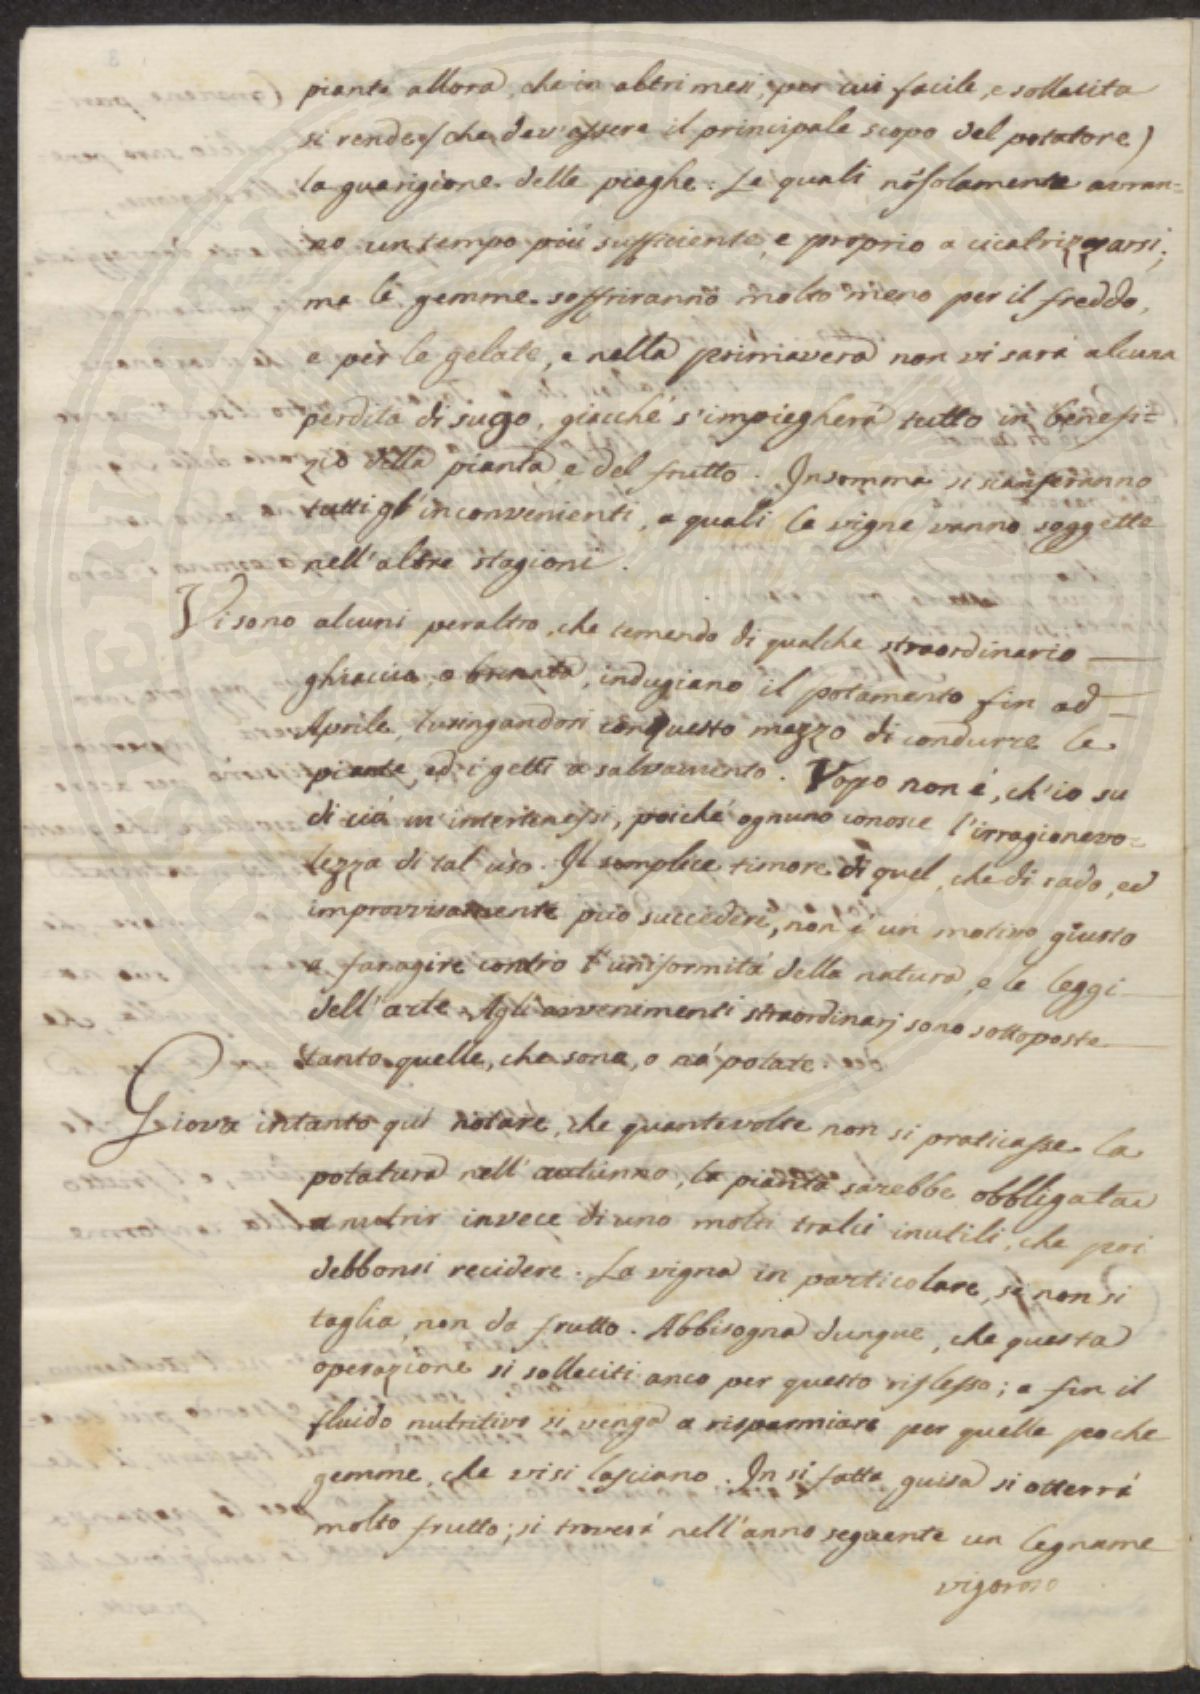 piante allora, che in altri mesi, per cui facile, e sollecita
si rende (che dev'essere il principale scopo del potatore)
la guarigione delle piaghe. Le quali nõ solamente avran=
no un tempo più sufficiente, e proprio a cicatrizzarsi;
ma le gemme soffriranno molto meno per il freddo,
e per le gelate, e nella primavera non vi sarà alcuna
perdita di sugo, giacché s'impiegherà tutto in benefi=
zio della pianta, e del frutto. Insomma si scanseranno
tutti gl'inconvenienti, a quali le vigne vanno soggette
nell'altre stagioni.
Vi sono alcuni peraltro, che temendo di qualche straordinario
ghiaccio, o brinata, indugiano il potamento fin ad
Aprile, lusingandosi con questo mezzo di condurre le
piante, ed i getti a salvamento. Vopo non è, ch'io su
di ciá m'intertenessi, poiché ognuno conosce l'irragionevo=
lezza di tal uso. Il semplice timore di quel, che di rado, ed
improvvisamente può succedere, non è un motivo giusto
a far agire contro l'uniformità della natura, e le leggi
dell'arte. Agli avvenimenti straordinarj sono sottoposte
tanto quelle, che sono, o nó potate.
Giova intanto quì notare, che quantevolte non si praticasse la
potatura nell'autunno, la pianta sarebbe obbligata
a nutrir invece di uno molti tralci inutili, che poi
debbonsi recidere. La vigna in particolare, se non si
taglia, non da frutto. Abbisogna dunque, che questa
operazione si solleciti anco per questo riflesso; a fin il
fluido nutritivo si venga a risparmiare per quelle poche
gemme, che visi lasciano. In si fatta guisa si otterrá
molto frutto; si troverá nell'anno seguente un legname
vigoroso